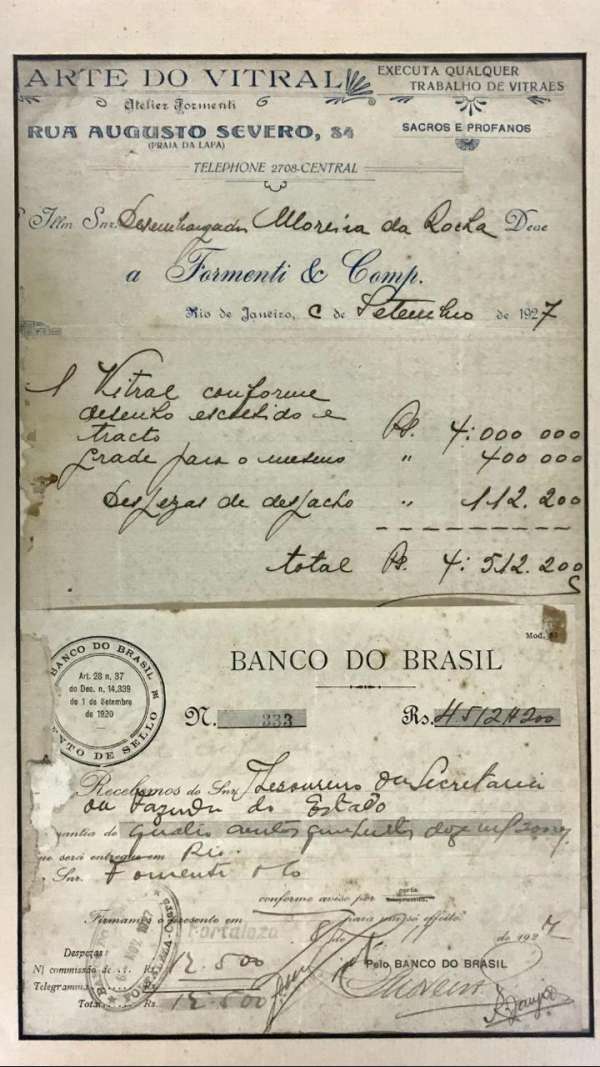 ARTE DO VITRAL
EXECUTA QUALQUER
TRABALHO DE VITRAES
Atelier Formenti
RUA AUGUSTO SEVERO, 84
(PRAIA DA LAPA)
SACROS E PROFANOS
TELEPHONE 2708-CENTRAL
Illm Snr. Desembargador Moreira da Rocha Deve
a Formenti & Comp.
Rio de Janeiro, de Setembro de 1927
1 Vitral conforme
desenho escolhido e
tracto Rs. 4:000 000
grade para o mesmo " 400 000
Despezas de despacho " 112.200
total Rs. 4:512.200
Mod.
BANCO DO BRASIL
BANCO DO BRASIL
Art. 28 n. 37
do Dec. n. 14.339
de 1 de Setembro
de 1920
ENTO DE SELLO
N. 333 Rs. 4512$200
Recebemos do Snr. Thesoureiro da Secretaria
da Fazenda do Estado
quantia de quatro contos quinhentos doze mil
será entregue em Rio
Snr. Formenti
conforme aviso por carta
Firmamos o presente em Fortaleza para um só effeito
8 de 11 de 1927
Despezas:
N/ commissão de Rs. 12.500
Telegramma Rs.
Total Rs. 12.500
Pelo BANCO DO BRASIL
NOV 1927
FORTALEZA